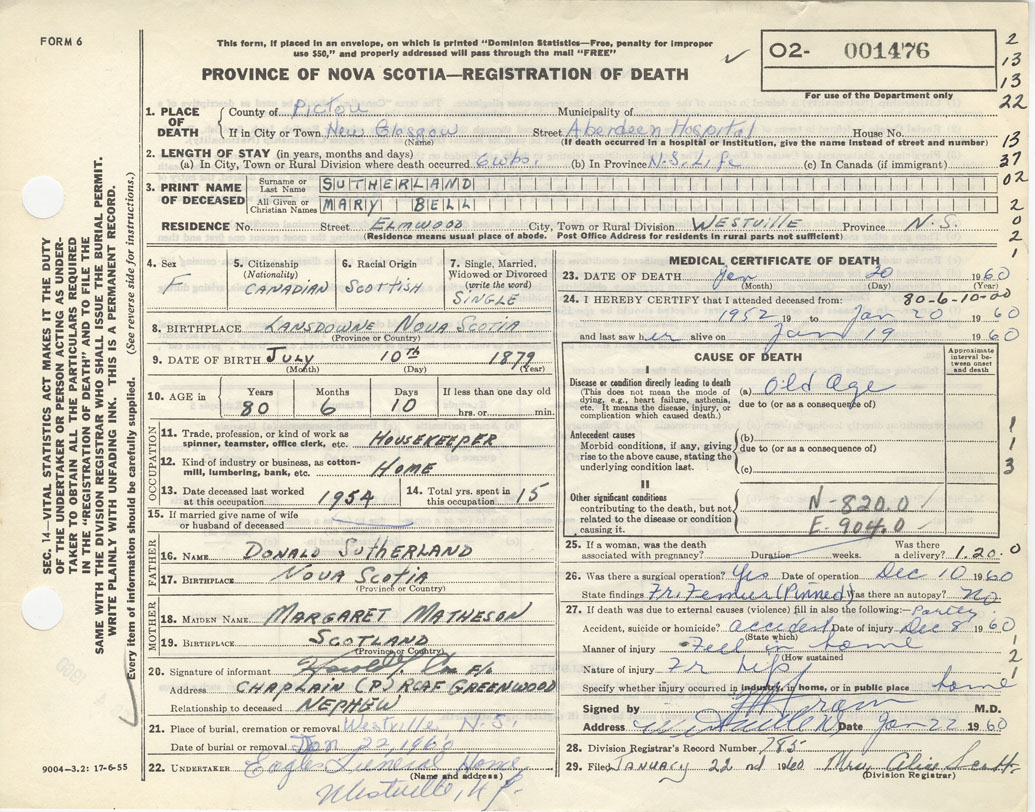 FORM 6
This form, if placed in an envelope, on which is printed "Dominion Statistics—Free, penalty for improper
use $50," and properly addressed will pass through the mail "FREE"
PROVINCE OF NOVA SCOTIA—REGISTRATION OF DEATH
O2- 001476
For use of the Department only
2
13
13
22
13
37
02
2
0
2
1
SEC. 14—VITAL STATISTICS ACT MAKES IT THE DUTY
OF THE UNDERTAKER OR PERSON ACTING AS UNDER-
TAKER TO OBTAIN ALL THE PARTICULARS REQUIRED
IN THE "REGISTRATION OF DEATH" AND TO FILE THE
SAME WITH THE DIVISION REGISTRAR WHO SHALL ISSUE THE BURIAL PERMIT.
WRITE PLAINLY WITH UNFADING INK. THIS IS A PERMANENT RECORD.
Every item of information should be carefully supplied. (See reverse side for instructions.)
1. PLACE OF DEATH County of Pictou Municipality of
If in City or Town New Glasgow Street Aberdeen Hospital House No.
(Name) (If death occurred in a hospital or institution, give the name instead of street and number)
2. LENGTH OF STAY (in years, months and days)
(a) In City, Town or Rural Division where death occurred 6wks. (b) In Province N.S. Life (c) In Canada (if immigrant)
3. PRINT NAME OF DECEASED Surname or Last Name SUTHERLAND
All Given or Christian Names MARY BELL
RESIDENCE No. Street ELMWOOD City, Town or Rural Division WESTVILLE Province N.S.
(Residence means usual place of abode. Post Office Address for residents in rural parts not sufficient)
4. Sex F
5. Citizenship (Nationality) CANADIAN
6. Racial Origin SCOTTISH
7. Single, Married, Widowed or Divorced (write the word) SINGLE
8. BIRTHPLACE LANSDOWNE NOVA SCOTIA
(Province or Country)
9. DATE OF BIRTH JULY 10th 1879
(Month) (Day) (Year)
10. AGE in Years 80 Months 6 Days 10 If less than one day old hrs. or min.
OCCUPATION
11. Trade, profession, or kind of work as spinner, teamster, office clerk, etc. HOUSEKEEPER
12. Kind of industry or business, as cotton-mill, lumbering, bank, etc. HOME
13. Date deceased last worked at this occupation 1954
14. Total yrs. spent in this occupation 15
15. If married give name of wife or husband of deceased
FATHER
16. NAME DONALD SUTHERLAND
17. BIRTHPLACE NOVA SCOTIA
(Province or Country)
MOTHER
18. MAIDEN NAME MARGARET MATHESON
19. BIRTHPLACE SCOTLAND
(Province or Country)
20. Signature of informant
Address CHAPLAIN (P) RCAF GREENWOOD
Relationship to deceased NEPHEW
21. Place of burial, cremation or removal Westville, N.S.
Date of burial or removal Jan 22, 1960
22. UNDERTAKER Eagles Funeral Home
(Name and address)
Westville, N.S.
9004-3.2: 17-6-55
MEDICAL CERTIFICATE OF DEATH
23. DATE OF DEATH Jan 20 1960
(Month) (Day) (Year)
24. I HEREBY CERTIFY that I attended deceased from: 80-6-10-00
1952 19 to Jan 20 1960
and last saw her alive on Jan 19 1960
CAUSE OF DEATH
Approximate interval between onset and death
I
Disease or condition directly leading to death (a) Old Age
(This does not mean the mode of dying, e.g., heart failure, asthenia, etc. It means the disease, injury, or complication which caused death.)
due to (or as a consequence of)
Antecedent causes
Morbid conditions, if any, giving rise to the above cause, stating the underlying condition last.
(b)
due to (or as a consequence of)
(c)
1
1
3
II
Other significant conditions contributing to the death, but not related to the disease or condition causing it.
N-820.0
E-904.0
25. If a woman, was the death associated with pregnancy? Duration weeks. Was there a delivery? 1.20.0
26. Was there a surgical operation? Yes Date of operation Dec 10 1960
State findings Fr. Femur (Pinned) Was there an autopsy? No
27. If death was due to external causes (violence) fill in also the following:— Partly
Accident, suicide or homicide? accident Date of injury Dec 8 1960
(State which)
Manner of injury Fell in home
(How sustained
Nature of injury Fr hip
1
2
1
Specify whether injury occurred in industry, in home, or in public place home
Signed by M.D.
Address Westville Date Jan 22 1960
28. Division Registrar's Record Number 785
29. Filed January 22nd 1960 Mrs. Alice Scott
(Division Registrar)